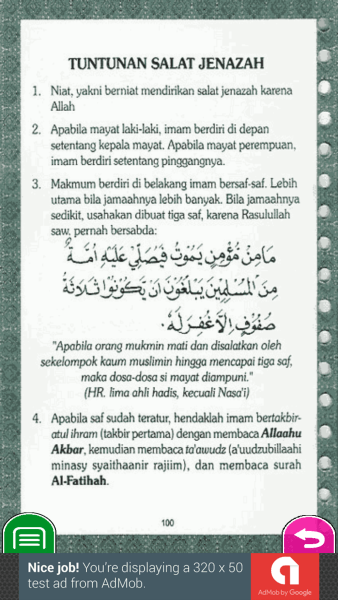 TUNTUNAN SALAT JENAZAH
1. Niat, yakni berniat mendirikan salat jenazah karena
Allah
2. Apabila mayat laki-laki, imam berdiri di depan
setentang kepala mayat. Apabila mayat perempuan,
imam berdiri setentang pinggangnya.
3. Makmum berdiri di belakang imam bersaf-saf. Lebih
utama bila jamaahnya lebih banyak. Bila jamaahnya
sedikit, usahakan dibuat tiga saf, karena Rasulullah
saw. pernah bersabda:
مَامِنْ مُؤْمِنٍ يَمُوْتُ فَيُصَلِّيْ عَلَيْهِ اُمَّةٌ
مِنَ الْمُسْلِمِيْنَ يَبْلُغُوْنَ اَنْ يَكُوْنُوْا ثَلَاثَةُ
صُفُوْفٍ اِلَّا غُفِرَ لَهُ.
"Apabila orang mukmin mati dan disalatkan oleh
sekelompok kaum muslimin hingga mencapai tiga saf,
maka dosa-dosa si mayat diampuni."
(HR. lima ahli hadis, kecuali Nasa'i)
4. Apabila saf sudah teratur, hendaklah imam bertakbir-
atul ihram (takbir pertama) dengan membaca Allaahu
Akbar, kemudian membaca ta'awudz (a'uudzubillaahi
minasy syaithaanir rajiim), dan membaca surah
Al-Fatihah.
100
Nice job! You're displaying a 320 x 50
test ad from AdMob.
AdMob by Google